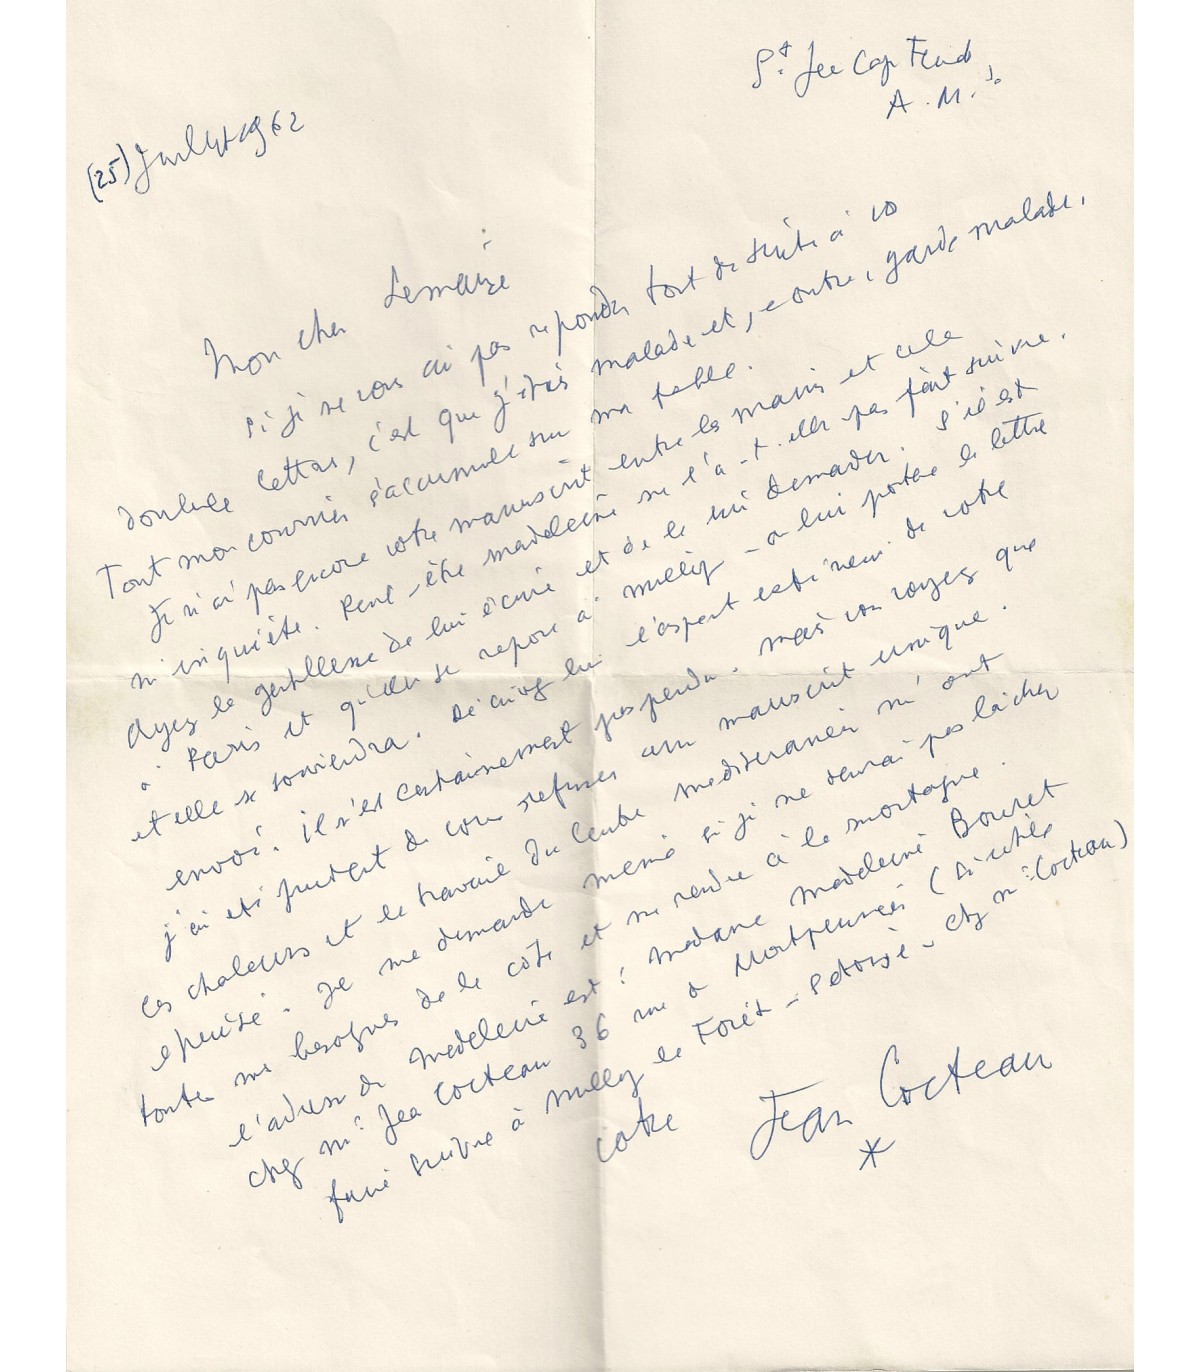 St Jean Cap Ferrat
A.M.
(25) Juillet 1962
Mon cher Lemaire
Si je ne vous ai pas répondu tout de suite à vo
double lettre, c'est que j'étais malade et, contre, garde malade.
Tout mon courrier s'accumule sur ma table.
Je n'ai pas encore votre manuscrit entre les mains et cela
m'inquiète. Peut-être Madeleine ne l'a-t-elle pas fait suivre.
Ayez la gentillesse de lui écrire et de le lui demander. S'il est
à Paris et qu'elle se repose à Milly - on lui portera la lettre
et elle se souviendra. Décrivez lui l'aspect extérieur de votre
envoi. Il n'est certainement pas perdu. Mais vous voyez que
j'ai été prudent de vous refuser un manuscrit unique.
Les chaleurs et le travail du Centre méditerranéen m'ont
épuisé. Je me demande même si je ne devrai pas lâcher
toutes mes besognes de la côte et me rendre à la montagne.
l'adresse de Madeleine est : Madame Madeleine Bouret
chez Mr Jean Cocteau 36 rue de Montpensier (Si utile
faire suivre à Milly la Forêt - S et Oise - chez Mr Cocteau)
votre Jean Cocteau
*